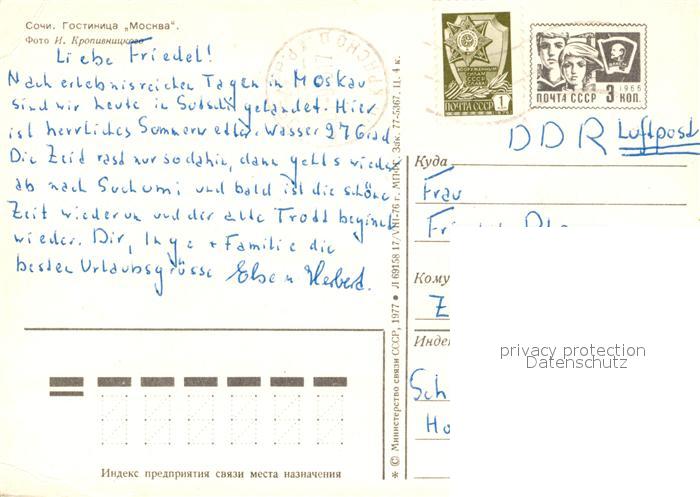 Сочи. Гостиница „Москва“.
Фото И. Кропивницкого
Liebe Friedel!
Nach erlebnisreichen Tagen in Moskau
sind wir heute in Sotschi gelandet. Hier
ist herrliches Sommerwetter. Wasser 27 Grad
Die Zeit rast nur so dahin, dann geht's wieder
ab nach Suchumi und bald ist die schöne
Zeit wieder um und der alte Trott beginnt
wieder. Dir, Inge + Familie die
besten Urlaubsgrüsse Else u Herbert.
Индекс предприятия связи места назначения
* © Министерство связи СССР, 1977 ● Л 69158 17/VIII-76 г. МПФГ. Зак. 77-5367. Ц. 4 к.
ВООРУЖЕННЫЕ СИЛЫ СССР
ПОЧТА СССР 1
1966
ПОЧТА СССР 3 КОП.
DDR Luftpost
Куда
Frau
Кому
Z
Инде
Sch
Ho
privacy protection
Datenschutz